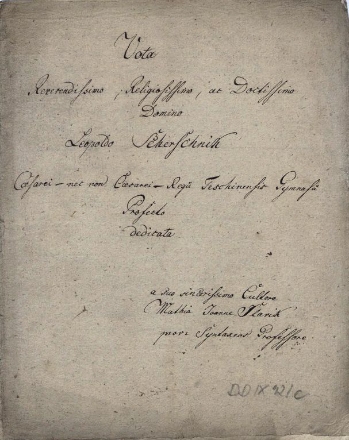 Vota
Reverendissimo, Religiosissimo, ac Doctissimo
Domino
Leopoldo Scherschnik
Cæsarei - nec non Cæsareo - Regii Teschinensis Gymnasii
Præfecto
dedicata
a suo sincerissimo Cultore
Mathia Joanne
Syntaxeos Professore
DD IX 12/c